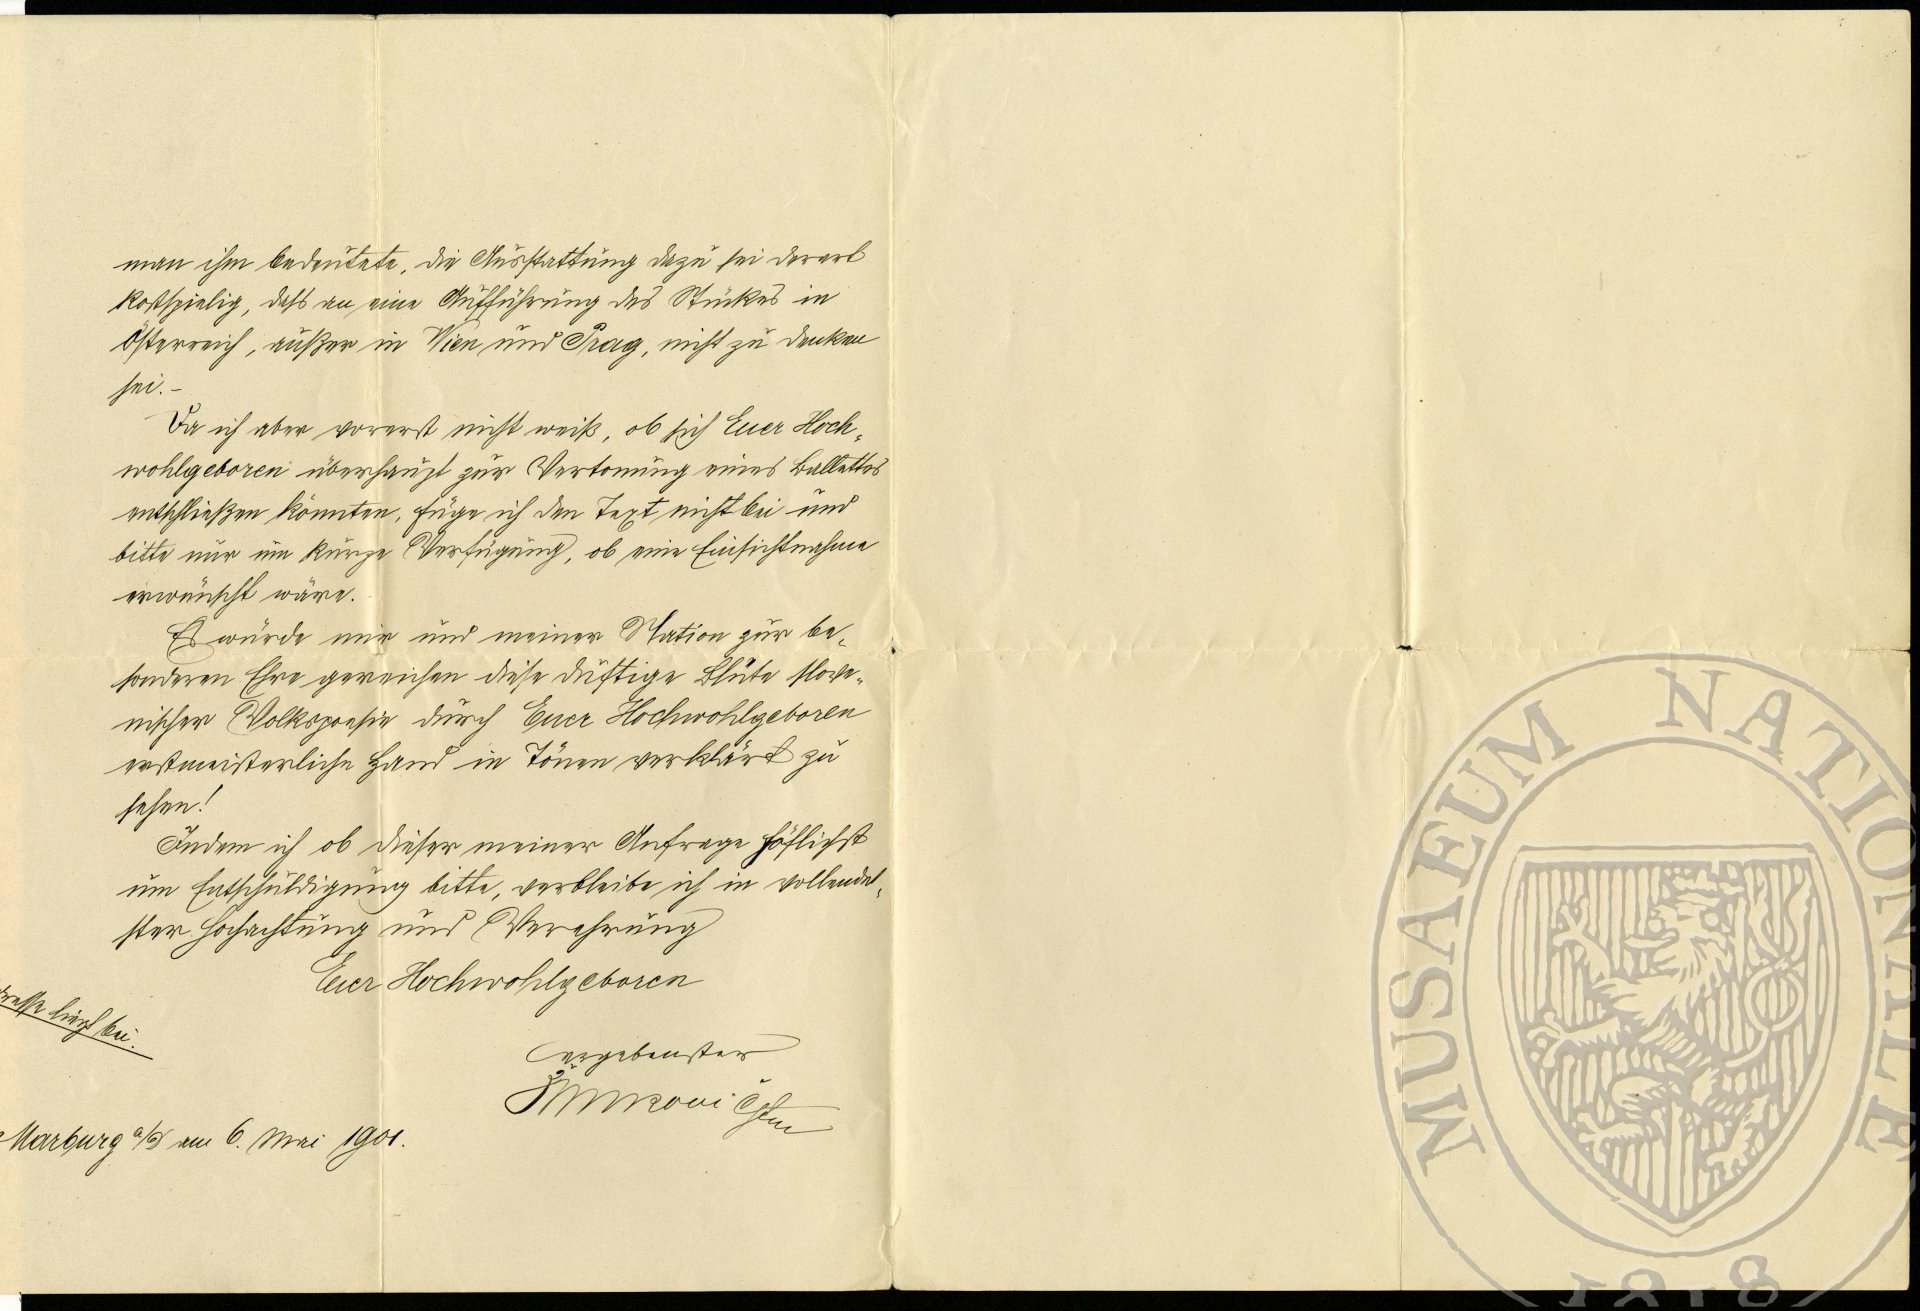 man ihm bedeutete, die Ausstattung dazu sei derart
kostspielig, daß an eine Aufführung des Stückes in
Österreich, außer in Wien und Prag, nicht zu denken
sei. –
Da ich aber vorerst nicht weiß, ob sich Euer Hoch-
wohlgeboren überhaupt zur Vertonung eines Ballettes
entschließen könnten, füge ich den Text nicht bei und
bitte nur um kurze Verfügung, ob eine Einsichtnahme
erwünscht wäre.
Es würde mir und meiner Nation zur be-
sonderen Ehre gereichen diese duftige Blüte slove-
nischer Volkspoesie durch Euer Hochwohlgeboren
erstmeisterliche Hand in Tönen verklärt zu
sehen!
Indem ich ob dieser meiner Anfrage höflichst
um Entschuldigung bitte, verbleibe ich in vollendet-
ster Hochachtung und Verehrung
Euer Hochwohlgeboren
resse liegt bei.
ergebenster
Žunkovič
Marburg a/D am 6. Mai 1901.
MUSAEUM NATIONALE
1818